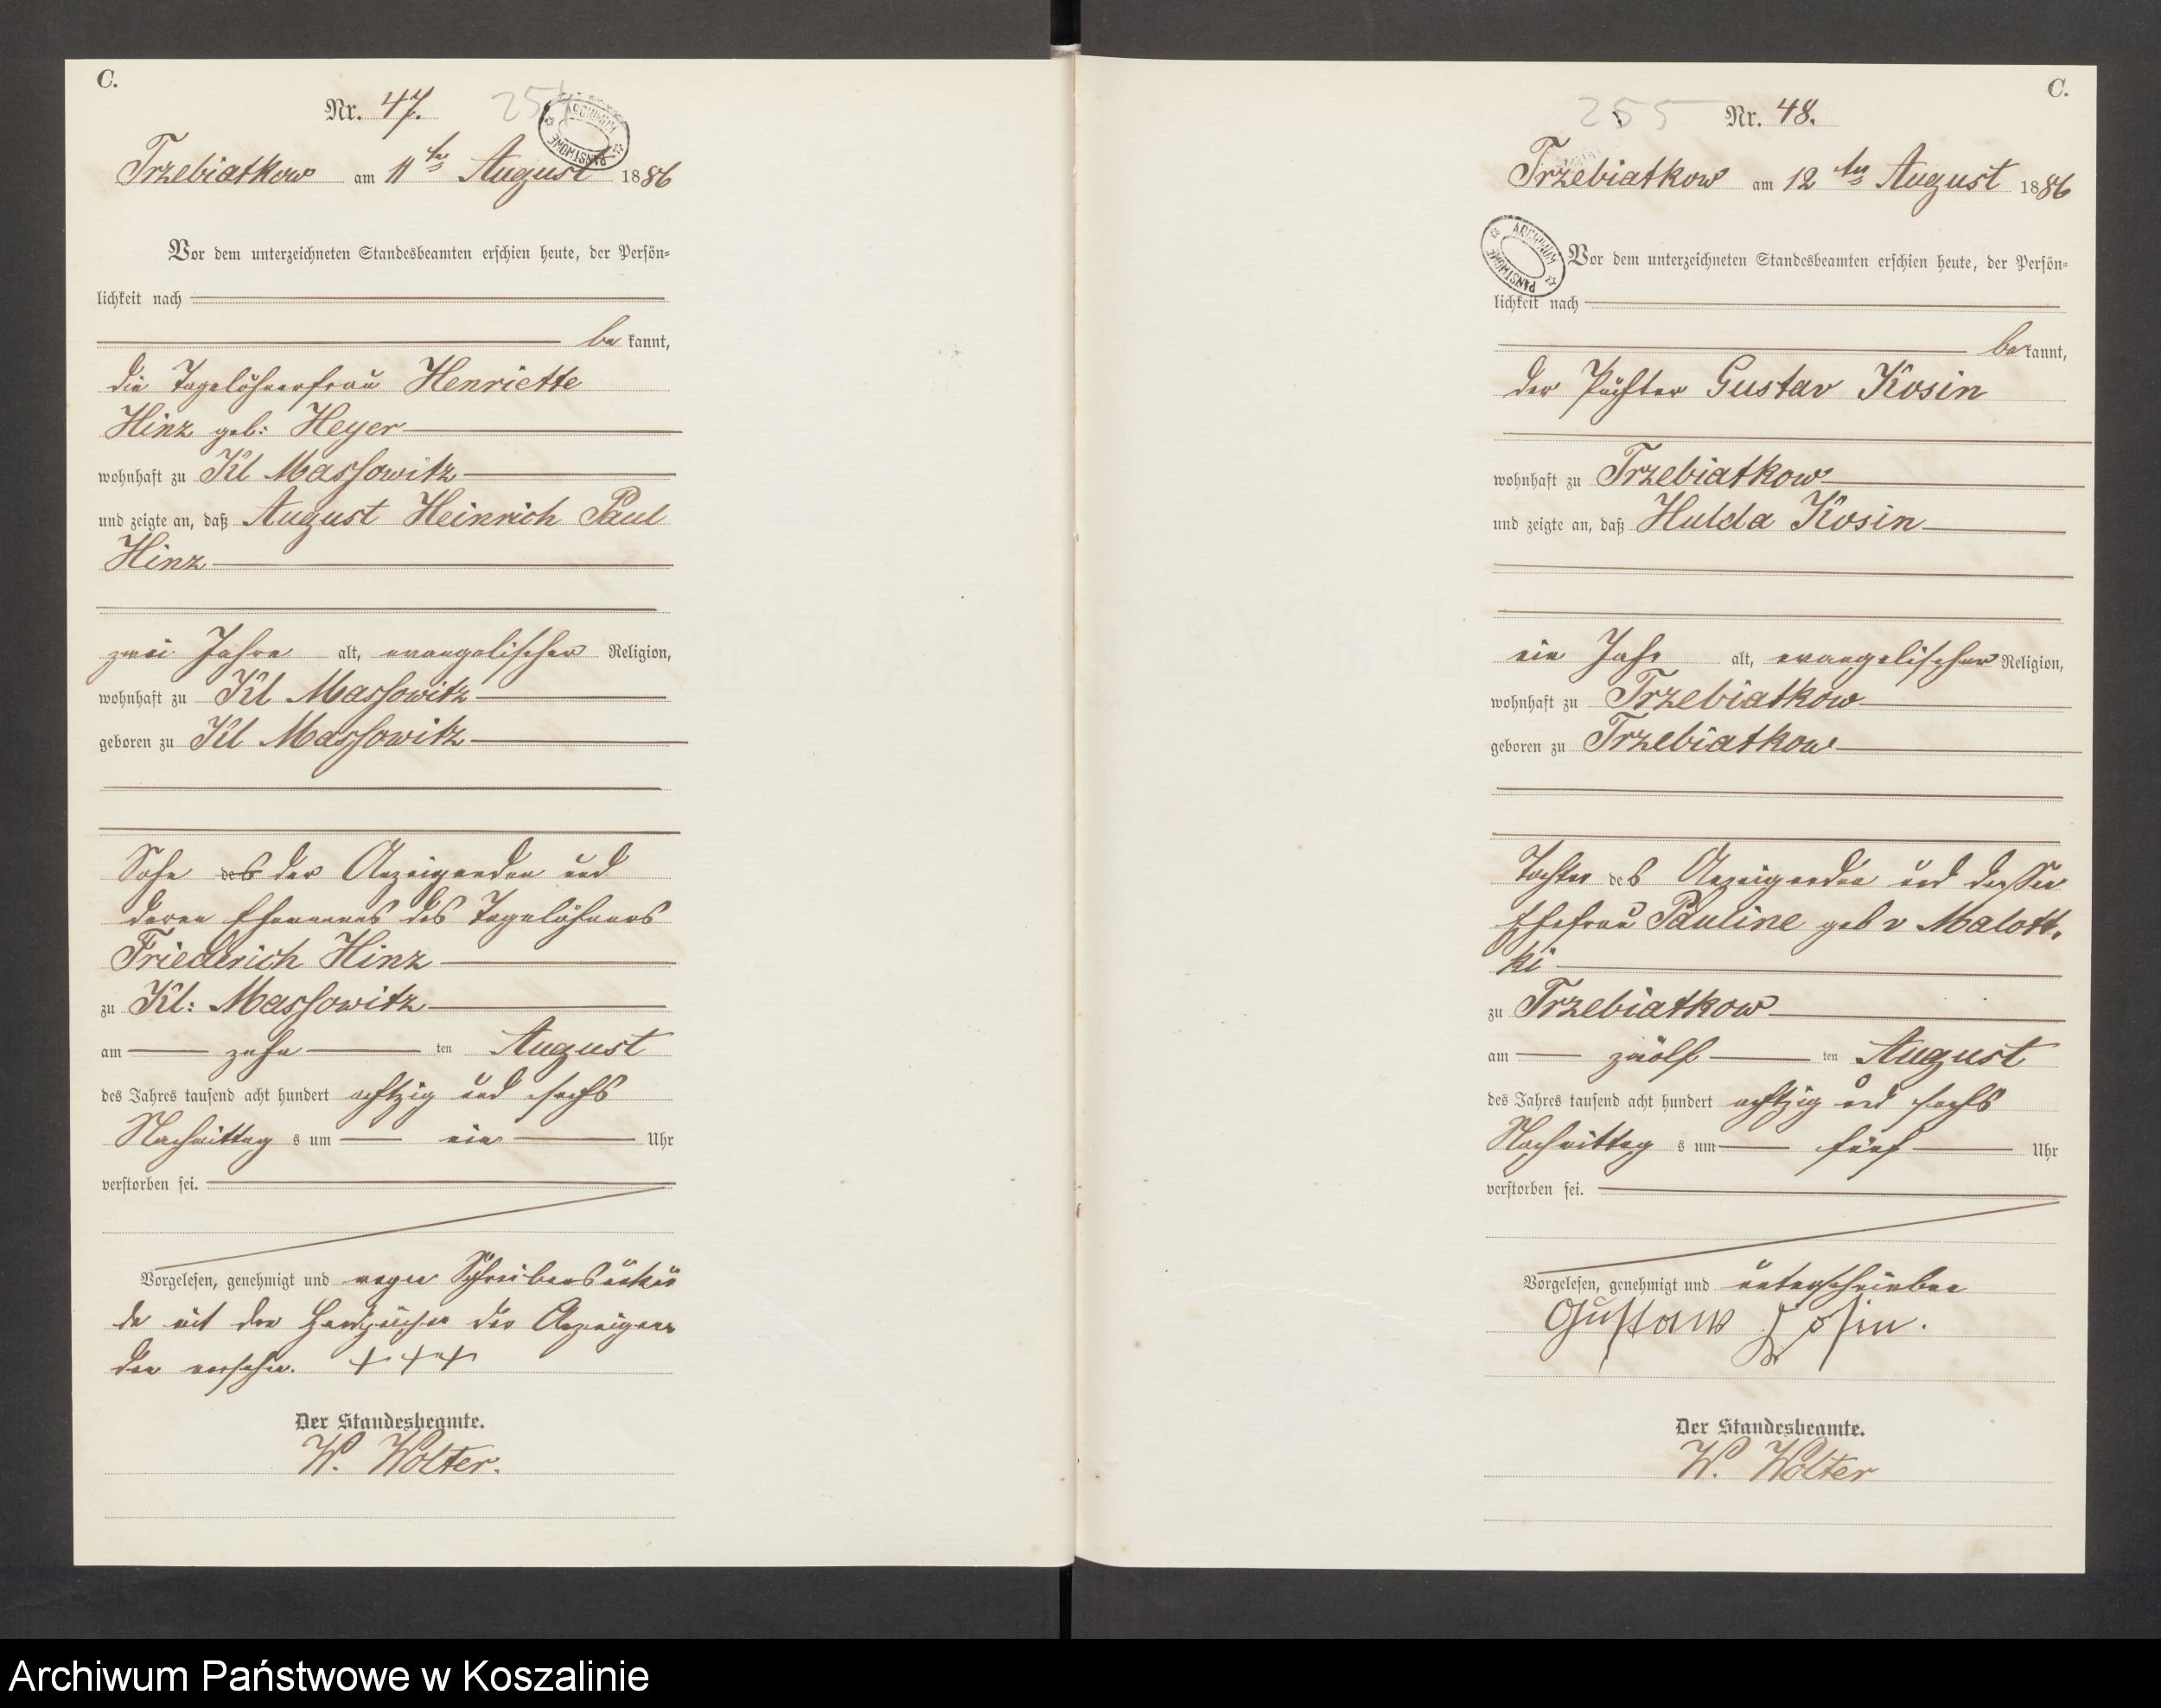 C.
Nr. 47.
254
ARCHIWUM PAŃSTWOWE
Trzebiatkow am 11ten August 1886
Vor dem unterzeichneten Standesbeamten erschien heute, der Persön-
lichkeit nach
be kannt,
die Tagelöhnerfrau Henriette
Hinz geb: Heyer
wohnhaft zu Kl Massowitz
und zeigte an, daß August Heinrich Paul
Hinz
zwei Jahre alt, evangelischer Religion,
wohnhaft zu Kl Massowitz
geboren zu Kl Massowitz
Sohn des der Anzeigenden und
deren Ehemanns des Tagelöhners
Friederich Hinz
zu Kl: Massowitz
am zehn ten August
des Jahres tausend acht hundert achtzig und sechs
Nachmittag s um ein Uhr
verstorben sei.
Vorgelesen, genehmigt und wegen Schreibensunkun
de mit den Handzeichen der Anzeigen
den versehn. + + +
Der Standesbeamte.
W. Wolter.
C.
255
Nr. 48.
Trzebiatkow am 12ten August 1886
ARCHIWUM PAŃSTWOWE
Vor dem unterzeichneten Standesbeamten erschien heute, der Persön-
lichkeit nach
be kannt,
der Pächter Gustav Kosin
wohnhaft zu Trzebiatkow
und zeigte an, daß Hulda Kosin
ein Jahr alt, evangelischer Religion,
wohnhaft zu Trzebiatkow
geboren zu Trzebiatkow
Tochter des Anzeigenden und dessen
Ehefrau Pauline geb v Malott-
ki
zu Trzebiatkow
am zwölf ten August
des Jahres tausend acht hundert achtzig und sechs
Nachmittag s um fünf Uhr
verstorben sei.
Vorgelesen, genehmigt und unterschrieben
Gustaw Kosin.
Der Standesbeamte.
W. Wolter
Archiwum Państwowe w Koszalinie